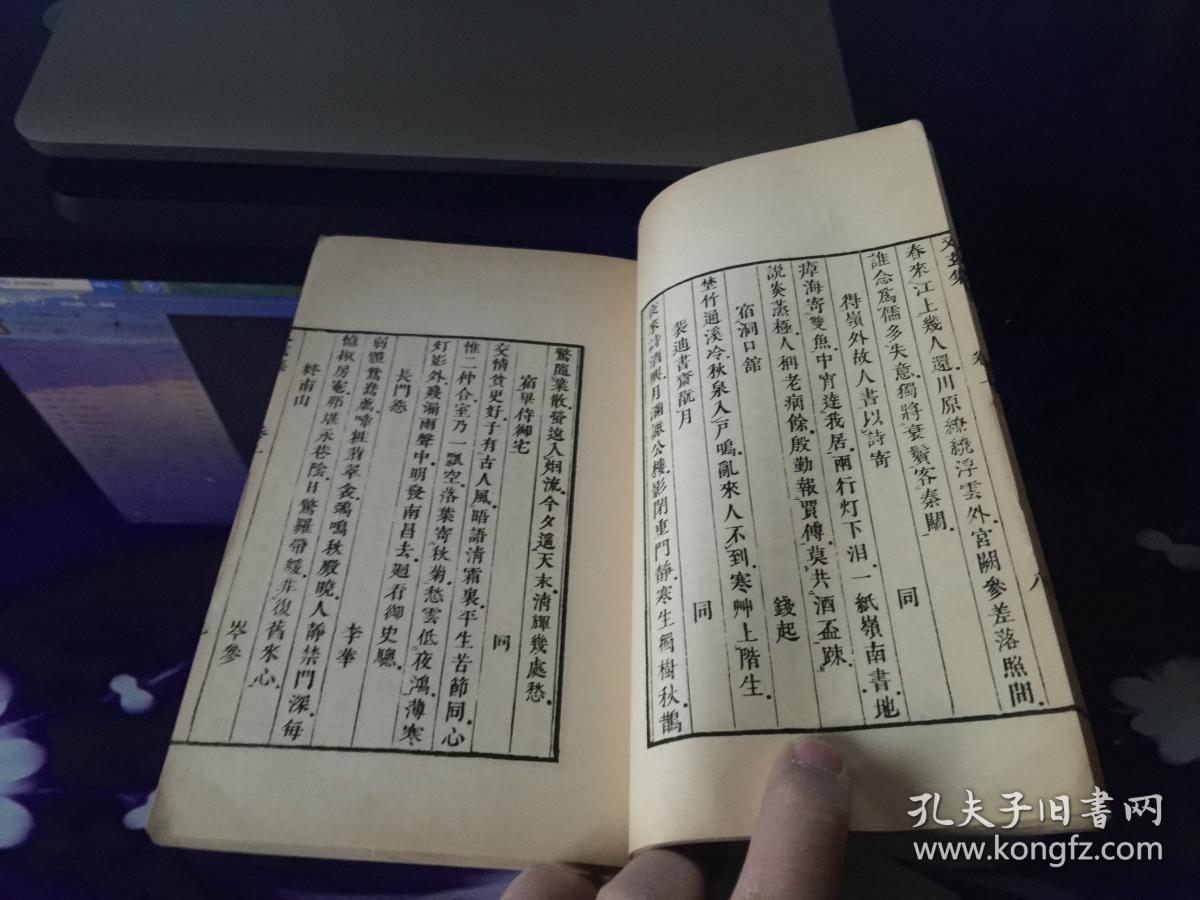 春來江上幾人還川原繚繞浮雲外宮闕參差落照間
誰念爲儒多失意獨將衰鬢客秦關
得嶺外故人書以詩寄 同
瘴海寄雙魚中宵達我居兩行灯下泪一紙嶺南書地
説炎蒸極人稱老病餘殷勤報賈傅莫共酒盃踈
宿洞口舘 錢起
埜竹通溪冷秋泉入戸鳴亂來人不到寒艸上階生
裴迪書齋翫月 同
夜來詩酒興月滿謝公樓影閉重門靜寒生獨樹秋鵲
卷一
八
驚隨葉散螢遠入烟流今夕遥天末淸輝幾處愁
宿畢侍御宅 同
交情貧更好子有古人風晤語清霜裏平生苦節同心
惟二仲合室乃一瓢空落葉寄秋菊愁雲低夜鴻薄寒
灯影外殘漏雨聲中明發南昌去廻看御史驄
長門怨 李華
弱體鴛鴦薦啼粧翡翠衾鴉鳴秋殿曉人靜禁門深每
憶椒房寵那堪永巷陰日驚羅帶緩非復舊來心
終南山 岑參
孔夫子旧書网
www.kongfz.com